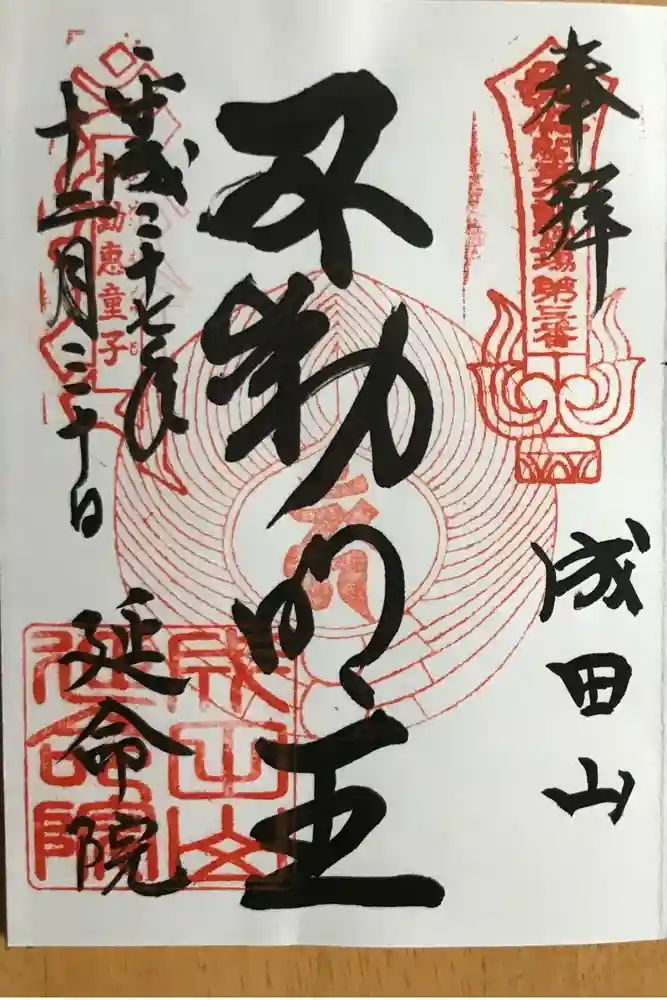 奉拝
場第三番
成田山
不動明王
平成二十七年
十二月三十日
動恵童子
延命院
成田山
延命院